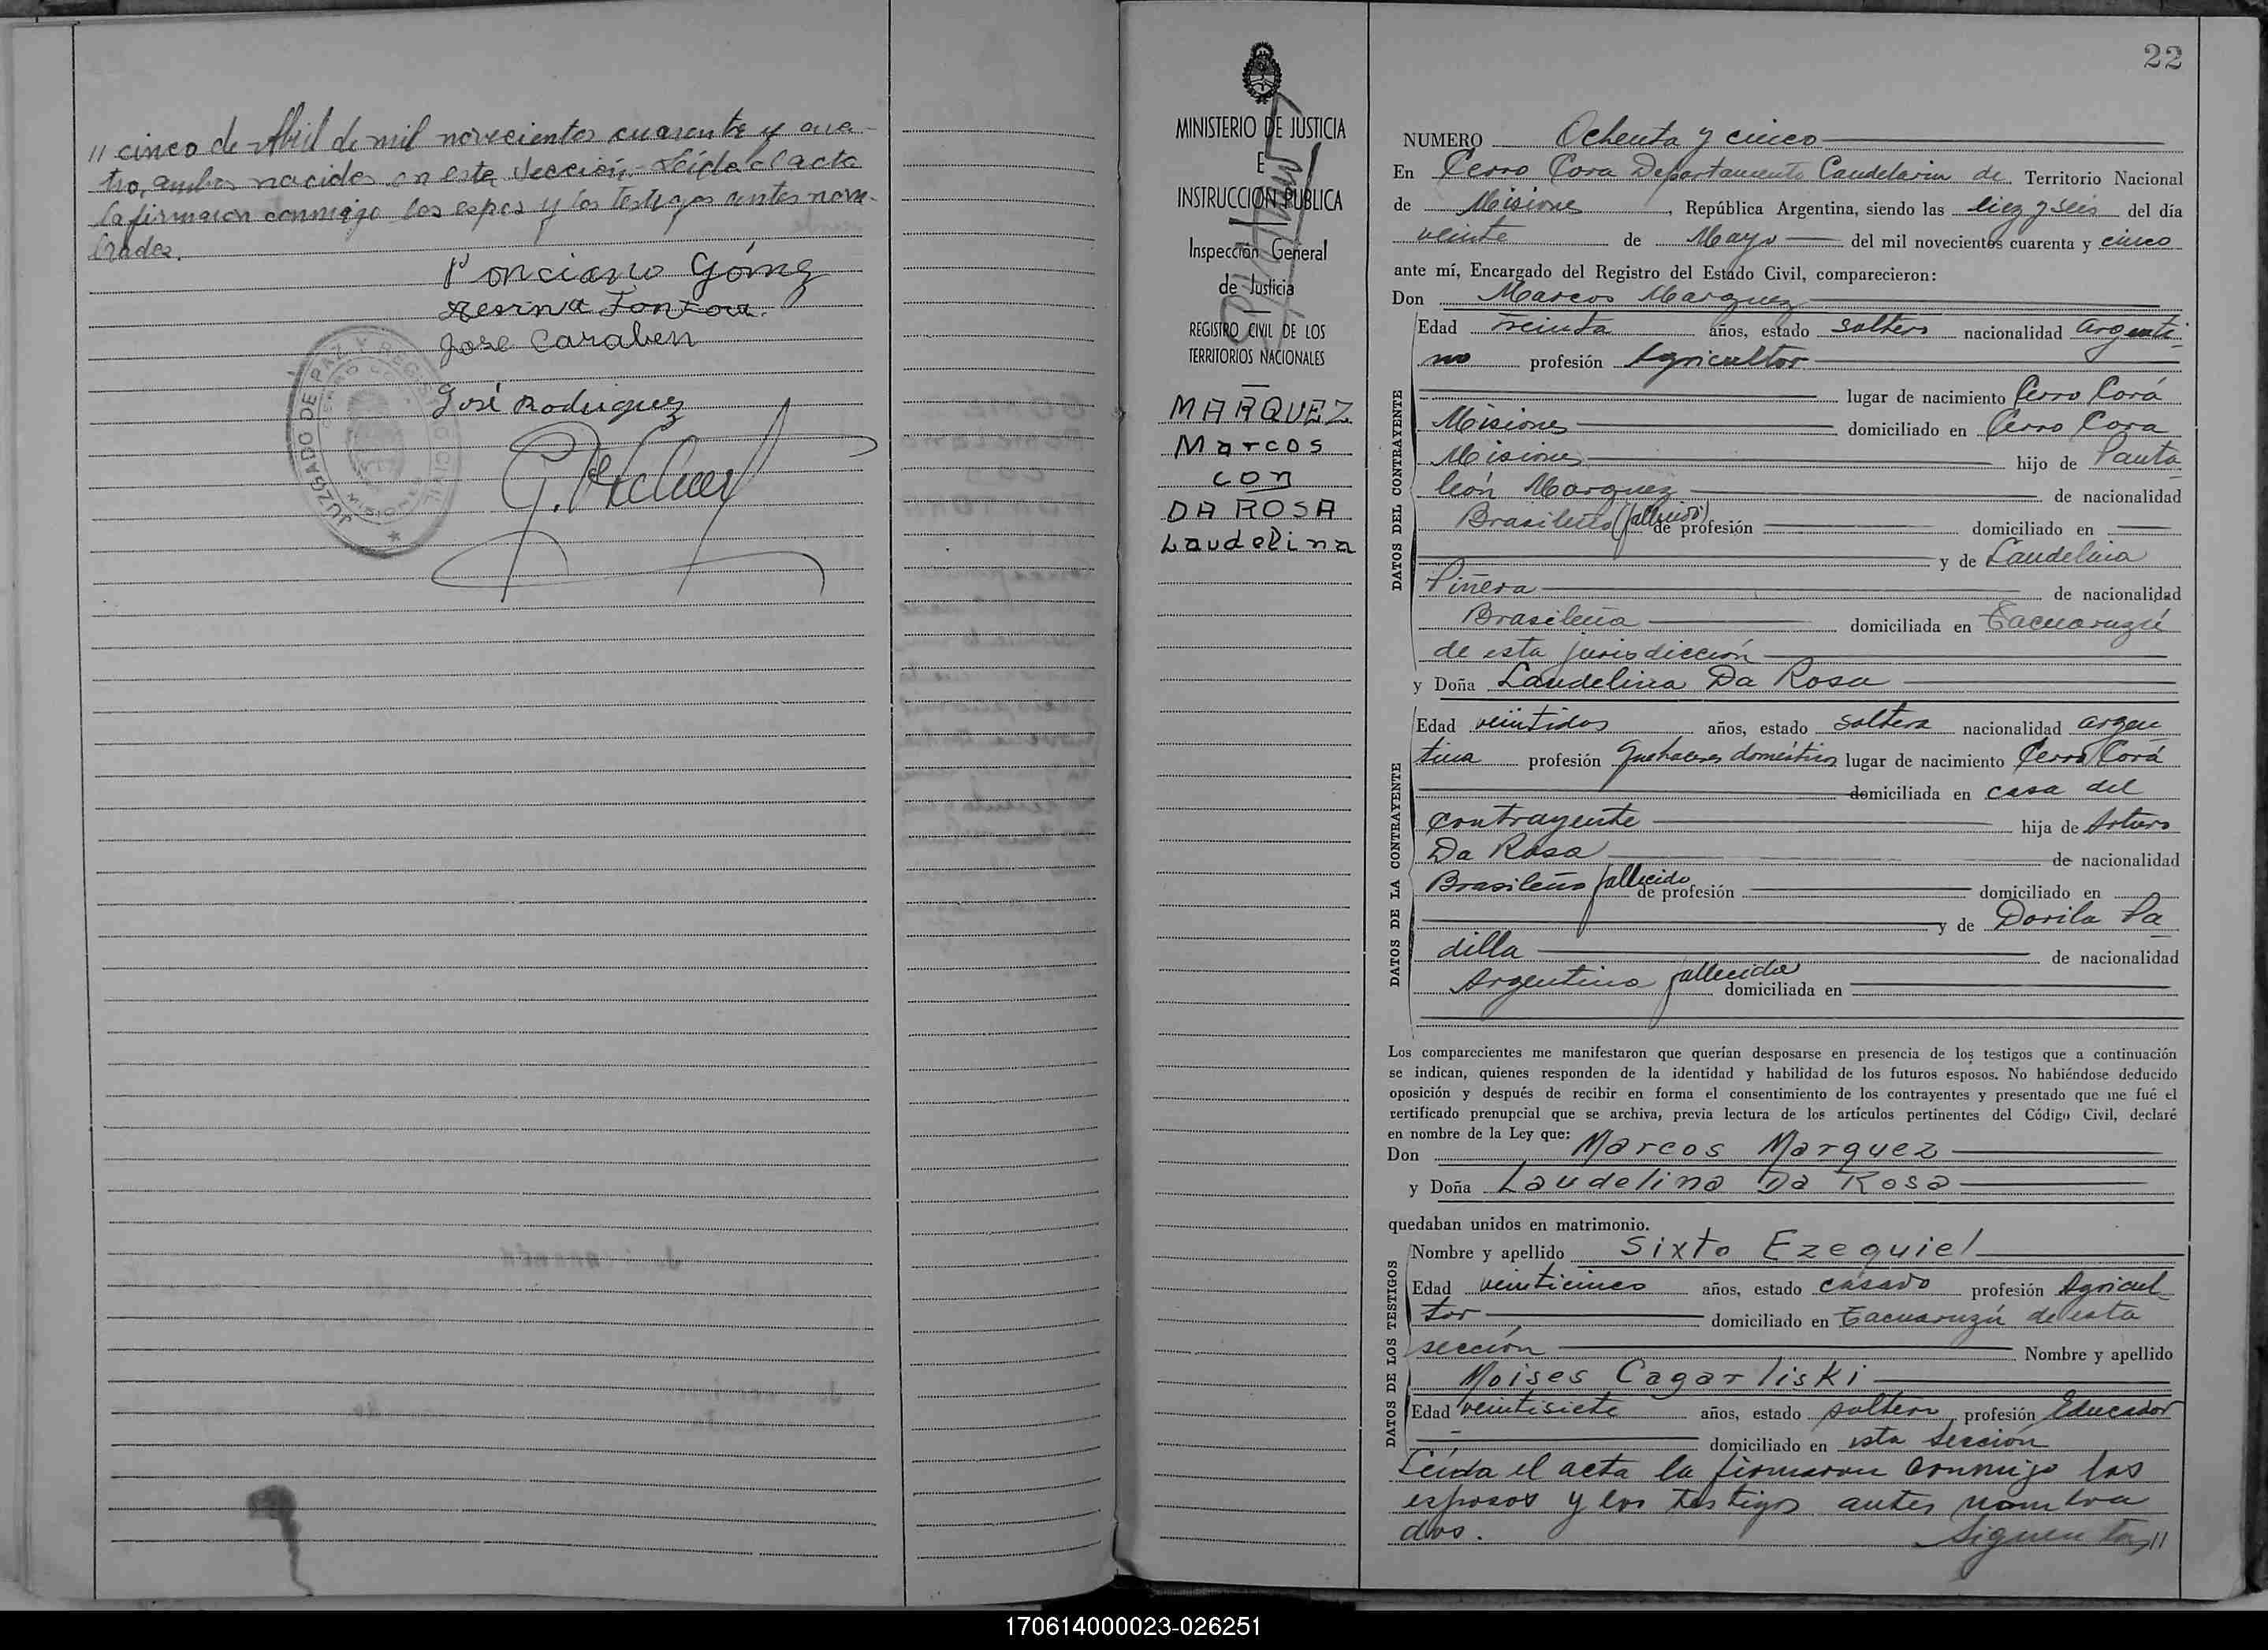 // cinco de Abril de mil novecientos cuarenta y cua-
tro, ambos nacidos en esta Sección. Leída el acta
la firmaron conmigo los espos y los testigos antes nom-
brados.
Ponciano Gómez
José Caraben
José Rodriguez
JUZGADO DE PAZ Y REGISTRO CIVIL
MINISTERIO DE JUSTICIA
E
INSTRUCCIÓN PUBLICA
Inspección General
de Justicia
REGISTRO CIVIL DE LOS
TERRITORIOS NACIONALES
MARQUEZ
Marcos
con
DA ROSA
Laudelina
22
NUMERO Ochenta y cinco
En Cerro Cora Departamento Candelaria de Territorio Nacional
de Misiones, República Argentina, siendo las diez y seis del día
veinte de Mayo del mil novecientos cuarenta y cinco
ante mí, Encargado del Registro del Estado Civil, comparecieron:
Don Marcos Marquez
DATOS DEL CONTRAYENTE
Edad treinta años, estado soltero nacionalidad argenti-
no profesión Agricultor
lugar de nacimiento Cerro Corá
Misiones domiciliado en Cerro Cora
Misiones hijo de Panta
león Marquez de nacionalidad
Brasileño (fallecido) de profesión domiciliado en
y de Laudelina
Piñera de nacionalidad
Brasileña domiciliada en Tacuaruzú
de esta jurisdicción
y Doña Laudelina Da Rosa
DATOS DE LA CONTRAYENTE
Edad veintidos años, estado soltera nacionalidad argen
tina profesión Quehaceres domésticos lugar de nacimiento Cerro Corá
domiciliada en casa del
contrayente hija de Arturo
Da Rosa de nacionalidad
Brasileño fallecido de profesión domiciliado en
y de Dorila Pa
dilla de nacionalidad
Argentina fallecida domiciliada en
Los comparecientes me manifestaron que querían desposarse en presencia de los testigos que a continuación
se indican, quienes responden de la identidad y habilidad de los futuros esposos. No habiéndose deducido
oposición y después de recibir en forma el consentimiento de los contrayentes y presentado que me fué el
certificado prenupcial que se archiva, previa lectura de los artículos pertinentes del Código Civil, declaré
en nombre de la Ley que:
Don Marcos Marquez
y Doña Laudelina Da Rosa
quedaban unidos en matrimonio.
DATOS DE LOS TESTIGOS
Nombre y apellido Sixto Ezequiel
Edad veinticinco años, estado casado profesión Agricul
tor domiciliado en Tacuaruzú de esta
sección Nombre y apellido
Moises Cagarliski
Edad veintisiete años, estado soltero profesión Educador
domiciliado en esta Sección
Leída el acta la firmaron conmigo los
esposos y los testigos antes nombra
dos. Siguen las //
170614000023-026251